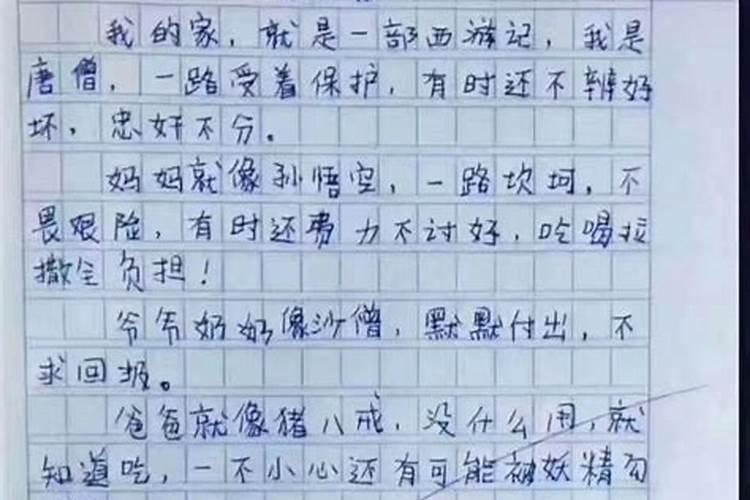 我的家，就是一部西游记，我是
唐僧，一路受着保护，有时还不辨好
坏，忠奸不分。
妈妈就像孙悟空，一路坎坷，不
畏艰险，有时还费力不讨好，吃喝拉
撒全负担！
爷爷奶奶像沙僧，默默付出，不
求回报。
爸爸就像猪八戒，没什么用，就
知道吃，一不小心还有可能被妖精勾